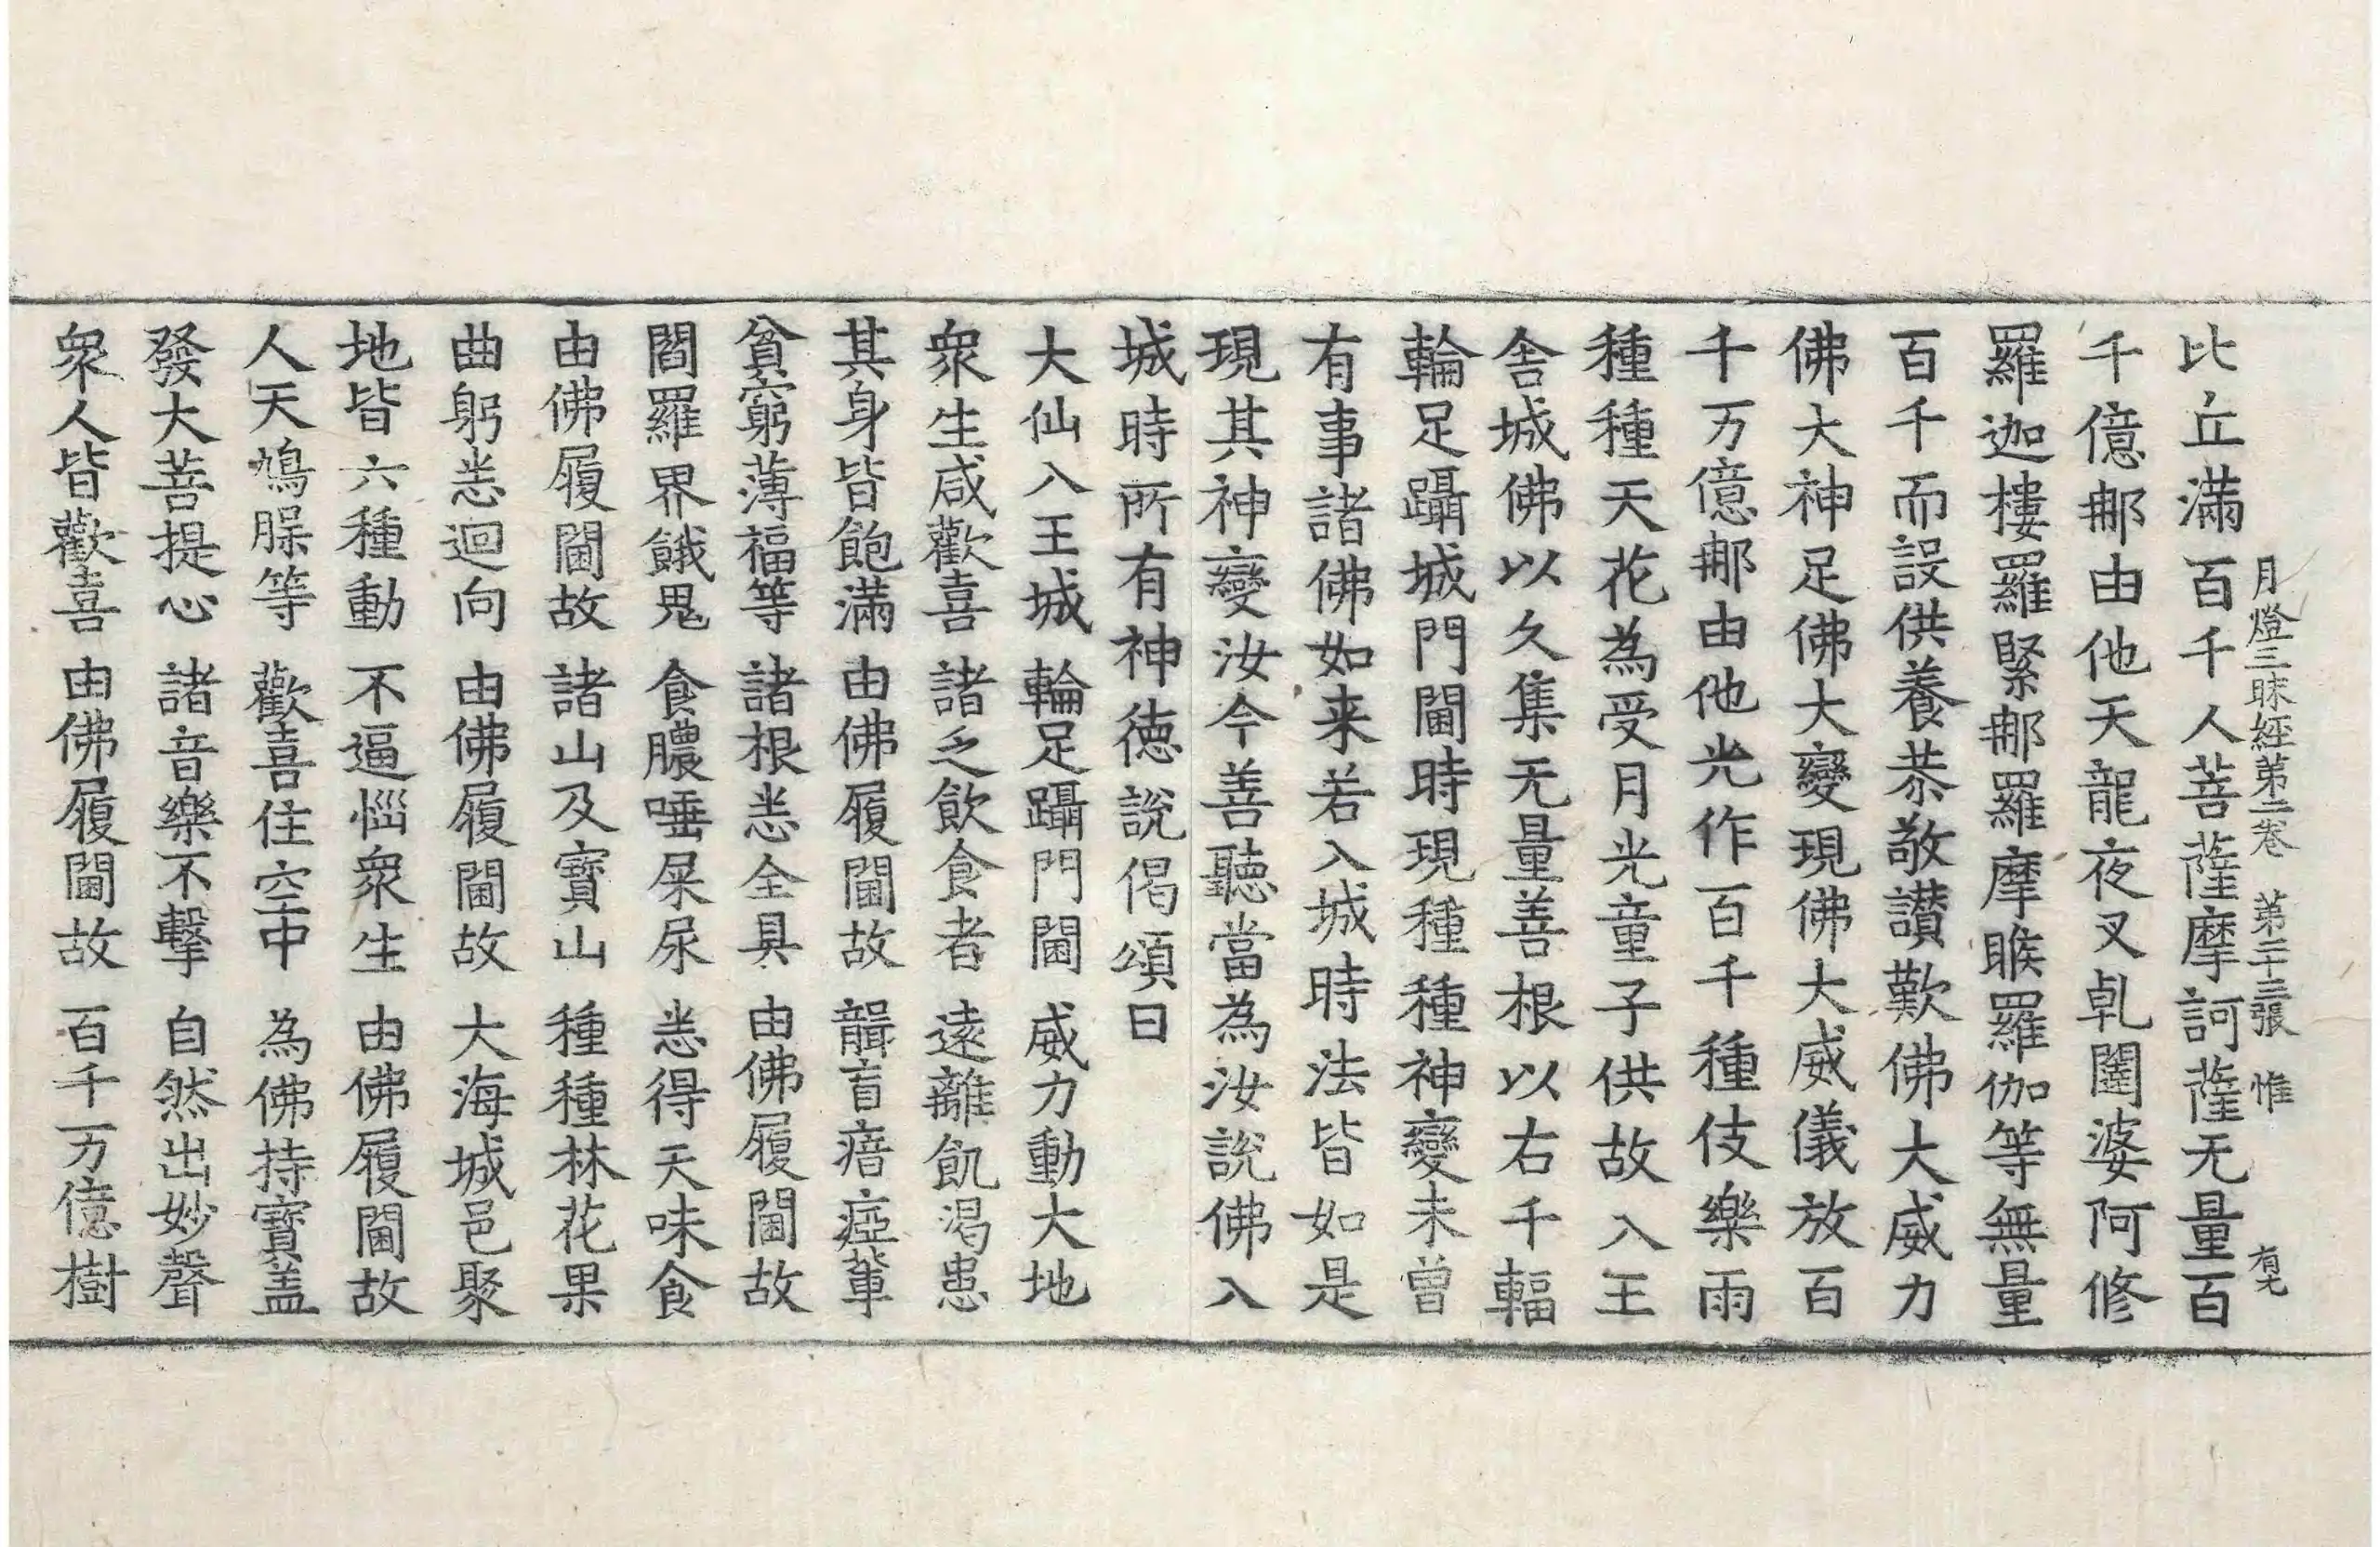 月燈三昧經第二卷 第二十三張 惟 有光
比丘滿百千人菩薩摩訶薩无量百
千億𨚗由他天龍夜叉乹闥婆阿修
羅迦樓羅緊𨚗羅摩睺羅伽等無量
百千而設供養恭敬讃歎佛大威力
佛大神足佛大變現佛大威儀放百
千万億𨚗由他光作百千種伎樂雨
種種天花為受月光童子供故入王
舍城佛以久集无量善根以右千輻
輪足躡城門閫時現種種神變未曾
有事諸佛如来若入城時法皆如是
現其神變汝今善聽當為汝說佛入
城時所有神德說偈頌曰
大仙入王城 輪足躡門閫 威力動大地
衆生咸歡喜 諸乏飲食者 遠離飢渴患
其身皆飽滿 由佛履閫故 聾盲瘖瘂輩
貧窮薄福等 諸根悉全具 由佛履閫故
閻羅界餓鬼 食膿唾屎尿 悉得天味食
由佛履閫故 諸山及寶山 種種林花果
曲躬悉迴向 由佛履閫故 大海城邑聚
地皆六種動 不逼惱衆生 由佛履閫故
人天鳩𦜕等 歡喜住空中 為佛持寶盖
發大菩提心 諸音樂不擊 自然出妙聲
衆人皆歡喜 由佛履閫故 百千万億樹